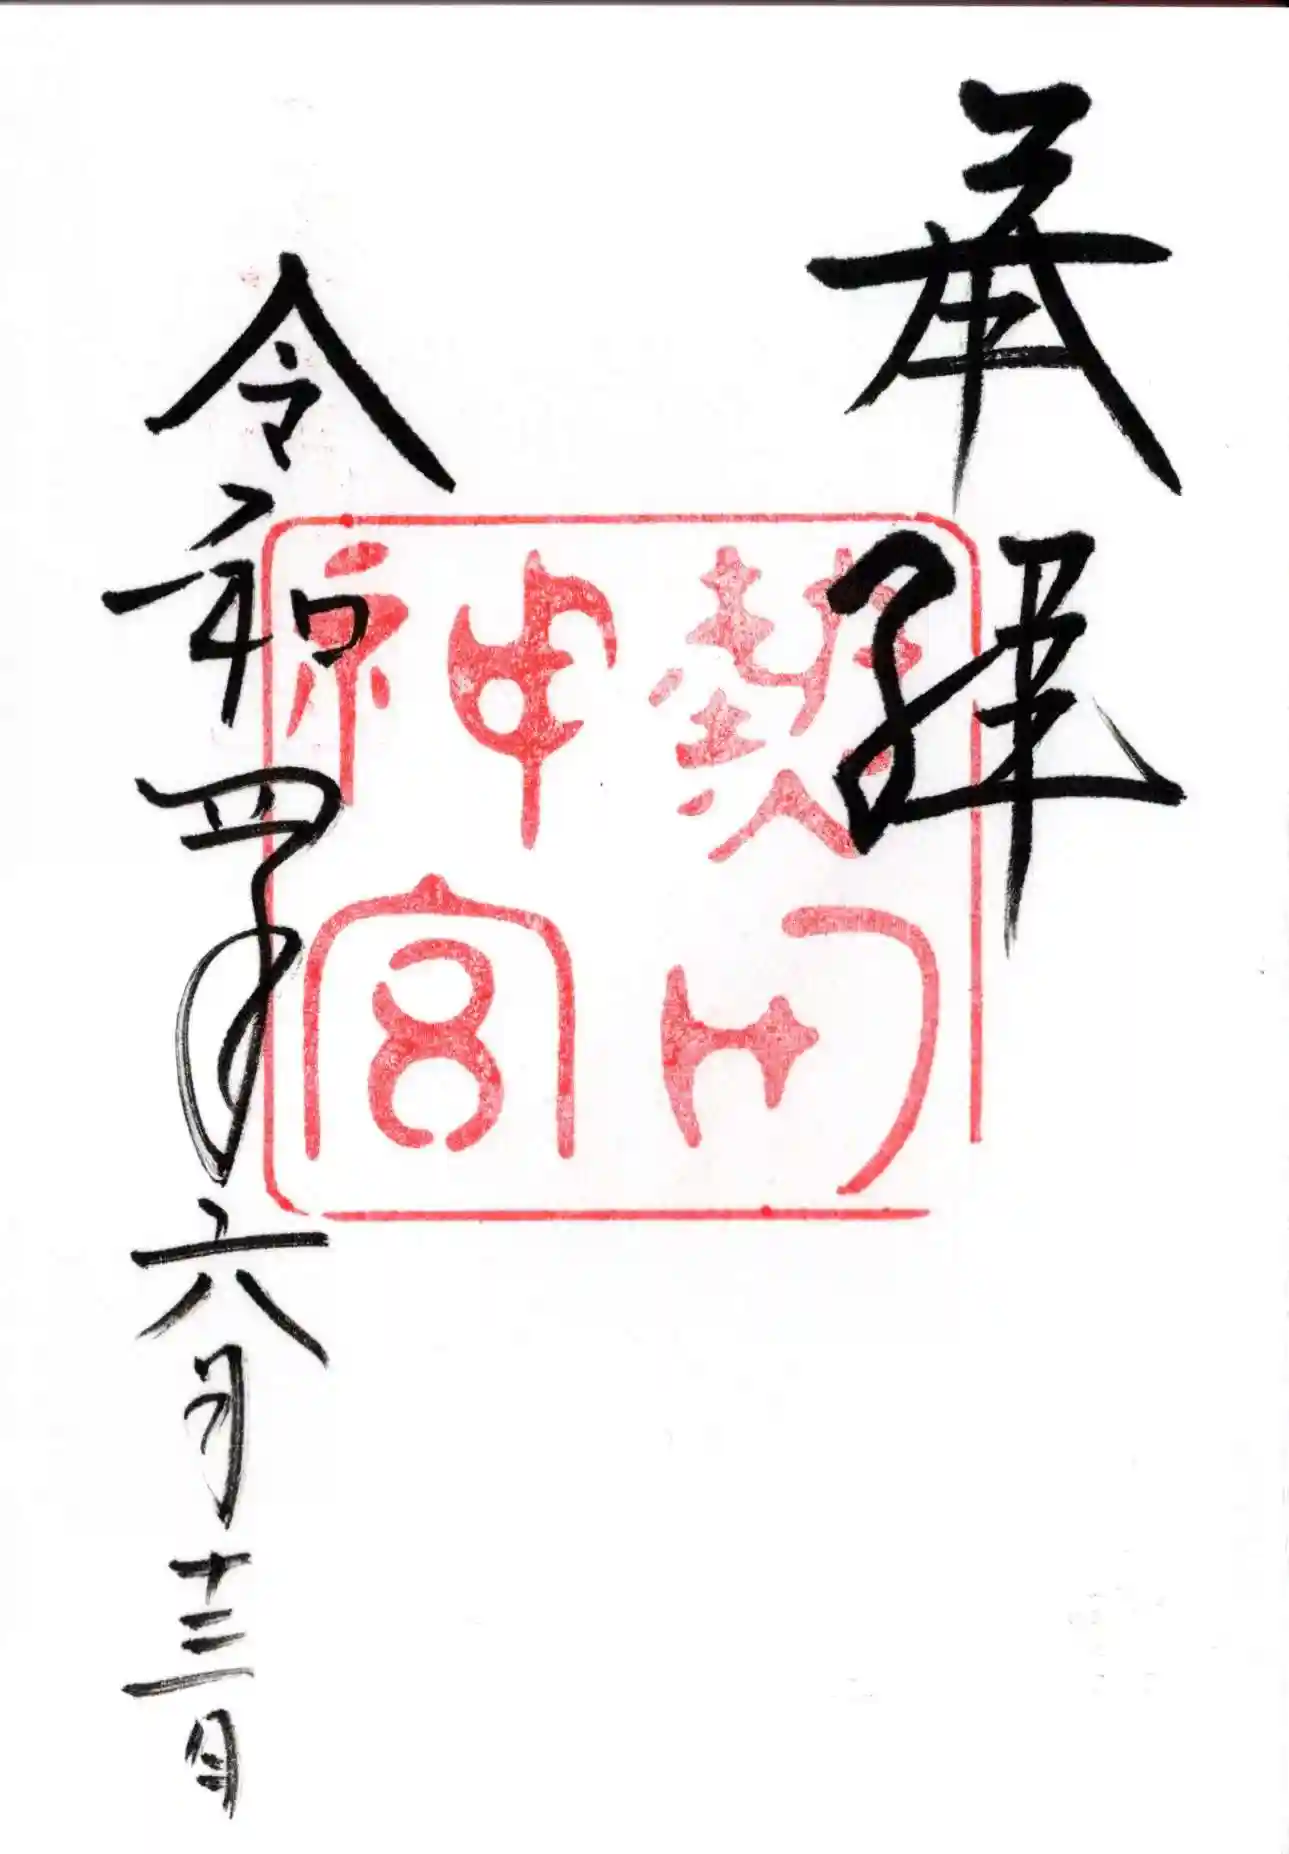 奉拝
熱田
神宮
令和四年六月十三日